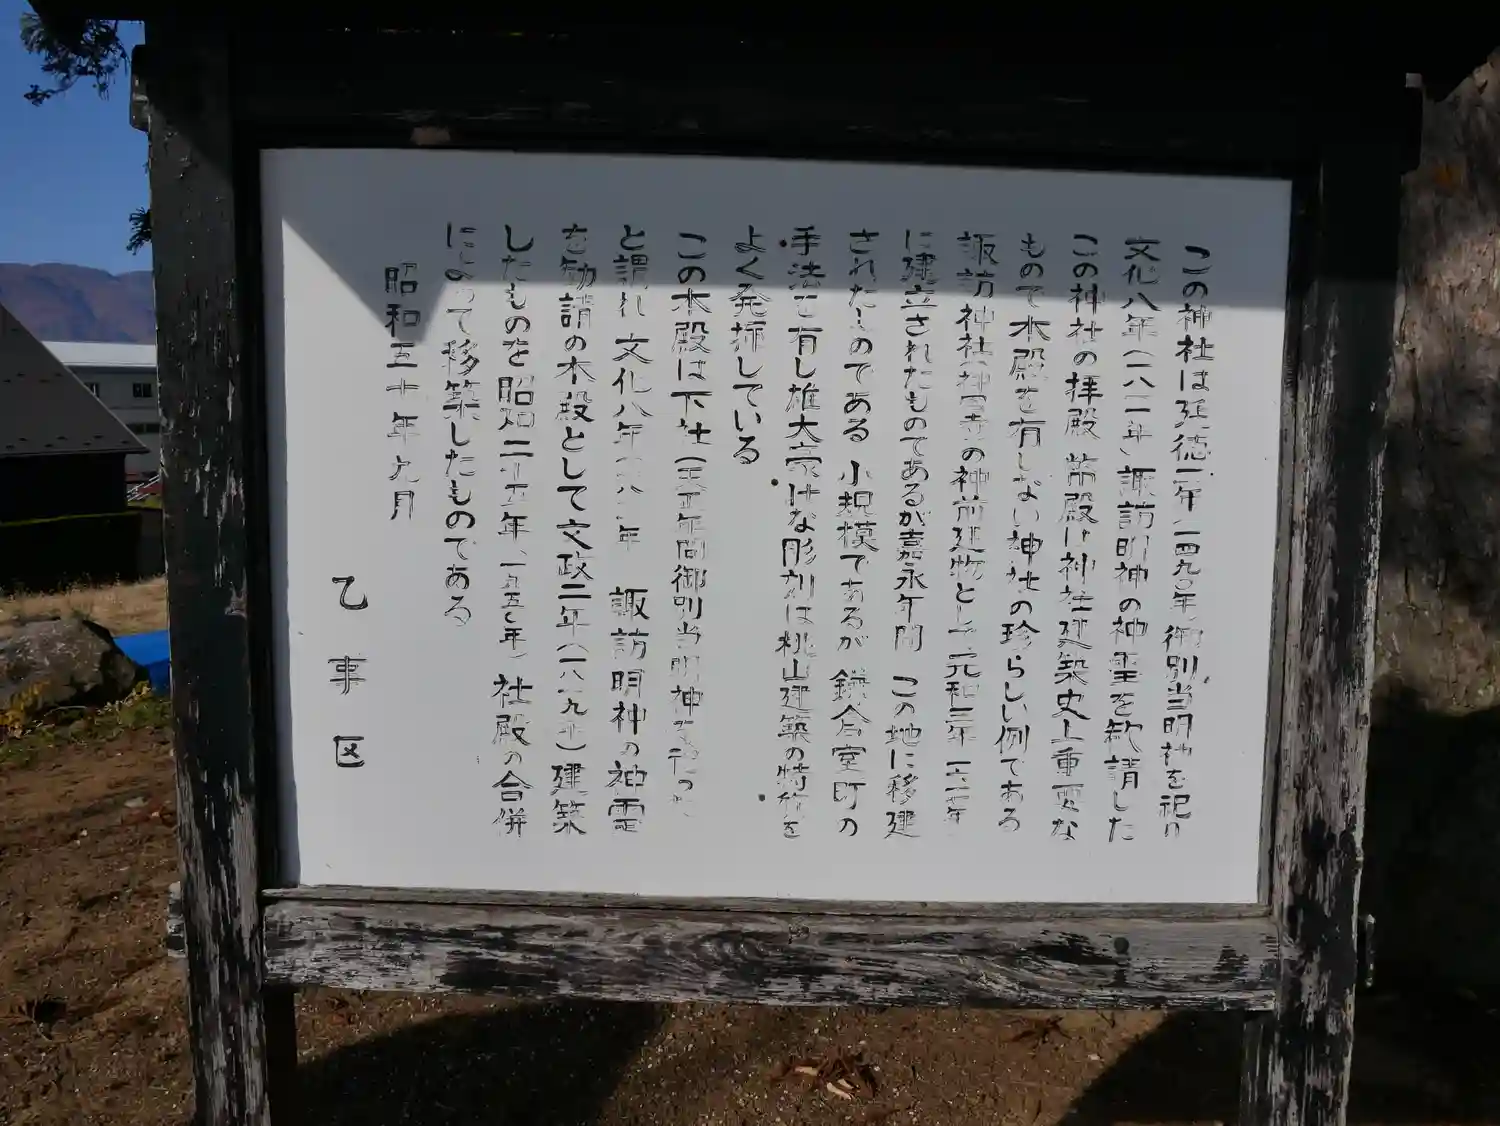 この神社は延徳二年(一四九〇年)御別当明神を祀り
文化八年(一八一一年)諏訪明神の神霊を勧請した
この神社の拝殿 幣殿は神社建築史上重要な
もので本殿を有しない神社の珍らしい例である
諏訪神社神宮寺の神前建物として元和三年 一六一七年
に建立されたものであるが嘉永年間 この地に移建
されたものである 小規模であるが 鎌倉室町の
手法を有し雄大豪けな彫刻は桃山建築の特徴を
よく発揮している
この本殿は下社(天正年間御別当明神を祀った
と謂れ 文化八年一八一一年 諏訪明神の神霊
を勧請の本殿として文政二年(一八一九年)建築
したものを昭和二十五年(一九五〇年)社殿の合併
によって移築したものである
昭和五十年九月
乙事区